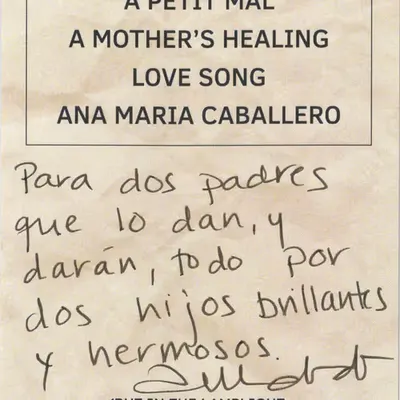 A PETIT MAL
A MOTHER'S HEALING
LOVE SONG
ANA MARIA CABALLERO
Para dos padres
que lo dan, y
darán, todo por
dos hijos brillantes
y hermosos.